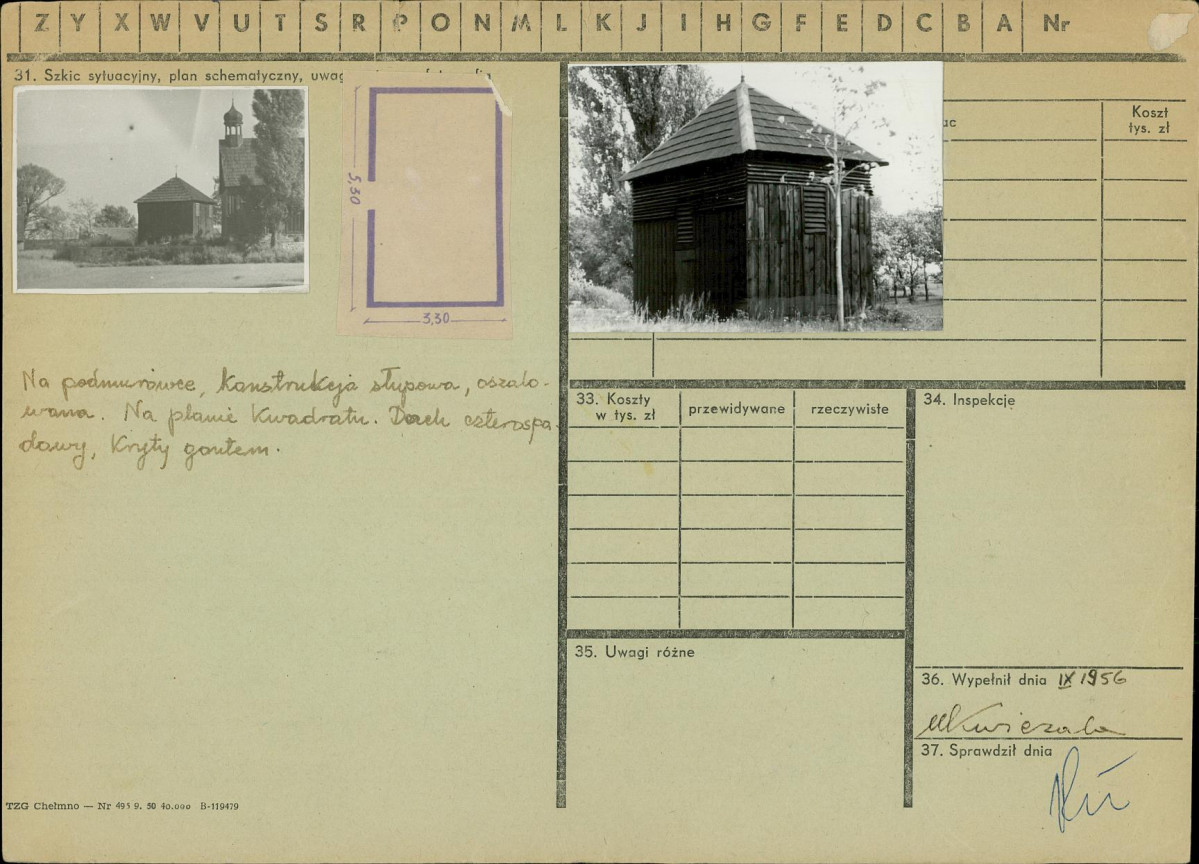 Z Y X W V U T S R P O N M L K J I H G F E D C B A Nr
31. Szkic sytuacyjny, plan schematyczny, uwag
5,30
3,30
Na podmurówce, konstrukcja słupowa, oszalo-
wana. Na planie kwadratu. Dach czterospa-
dowy, kryty gontem.
TZG Chełmno — Nr 495 9. 50 40.000 B-119479
ac
Koszt
tys. zł
33. Koszty
w tys. zł
przewidywane
rzeczywiste
34. Inspekcje
35. Uwagi różne
36. Wypełnił dnia IX 1956
37. Sprawdził dnia